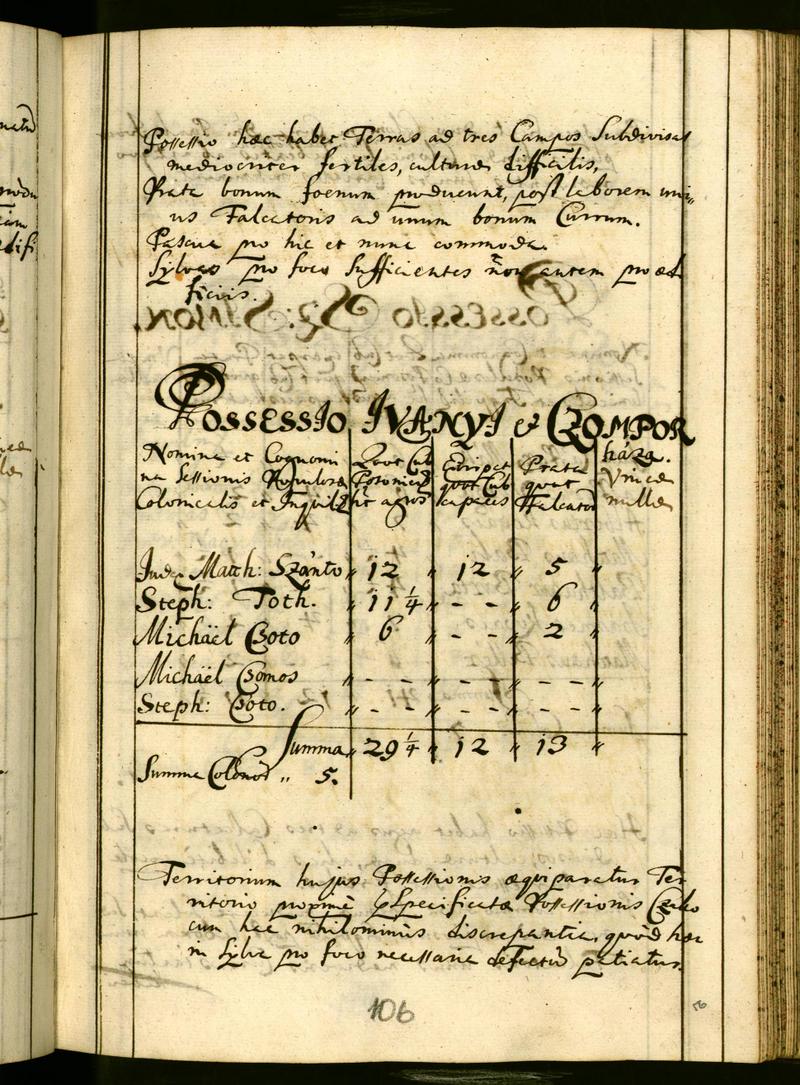 Possessio haec habet Terras ad tres Campos Subdivisas
mediocriter fertiles, culturae difficilis,
Prata bonum foenum producunt, post laborem uni-
us Falcatoris ad unum bonum Currum.
Pascua pro hic et nunc commoda.
Sylvas pro foco Sufficientes non autem pro aed
ficiis.
POSSESSIO IVANYI et CZOMPOR
háza.
Nomina et Cognomi Quot Cub Prata Vineae
na Sessionis Populorū Posonien quot nullae
Colonicalis et Inquil sit agros capaces Falcator
Judex Matth: Szánto " 12 " 12 " 5 "
Steph: Toth. " 11 1/4 " - - " 6 "
Michäel Csoto " 6 " - - " 2 "
Michäel Csomos " - - " - - " - - "
Steph: Csoto. " - - " - - " - - "
Summa " 29 1/4 " 12 " 13 "
Summa Colonor " 5.
Territorium hujus Possessionis aequiparatur Ter-
ritorio proximè Specificatae Possessionis
cum hac nihilominùs discrepantia, quòd haec
in Sylva pro foco necessaria defectū patiatur.
106